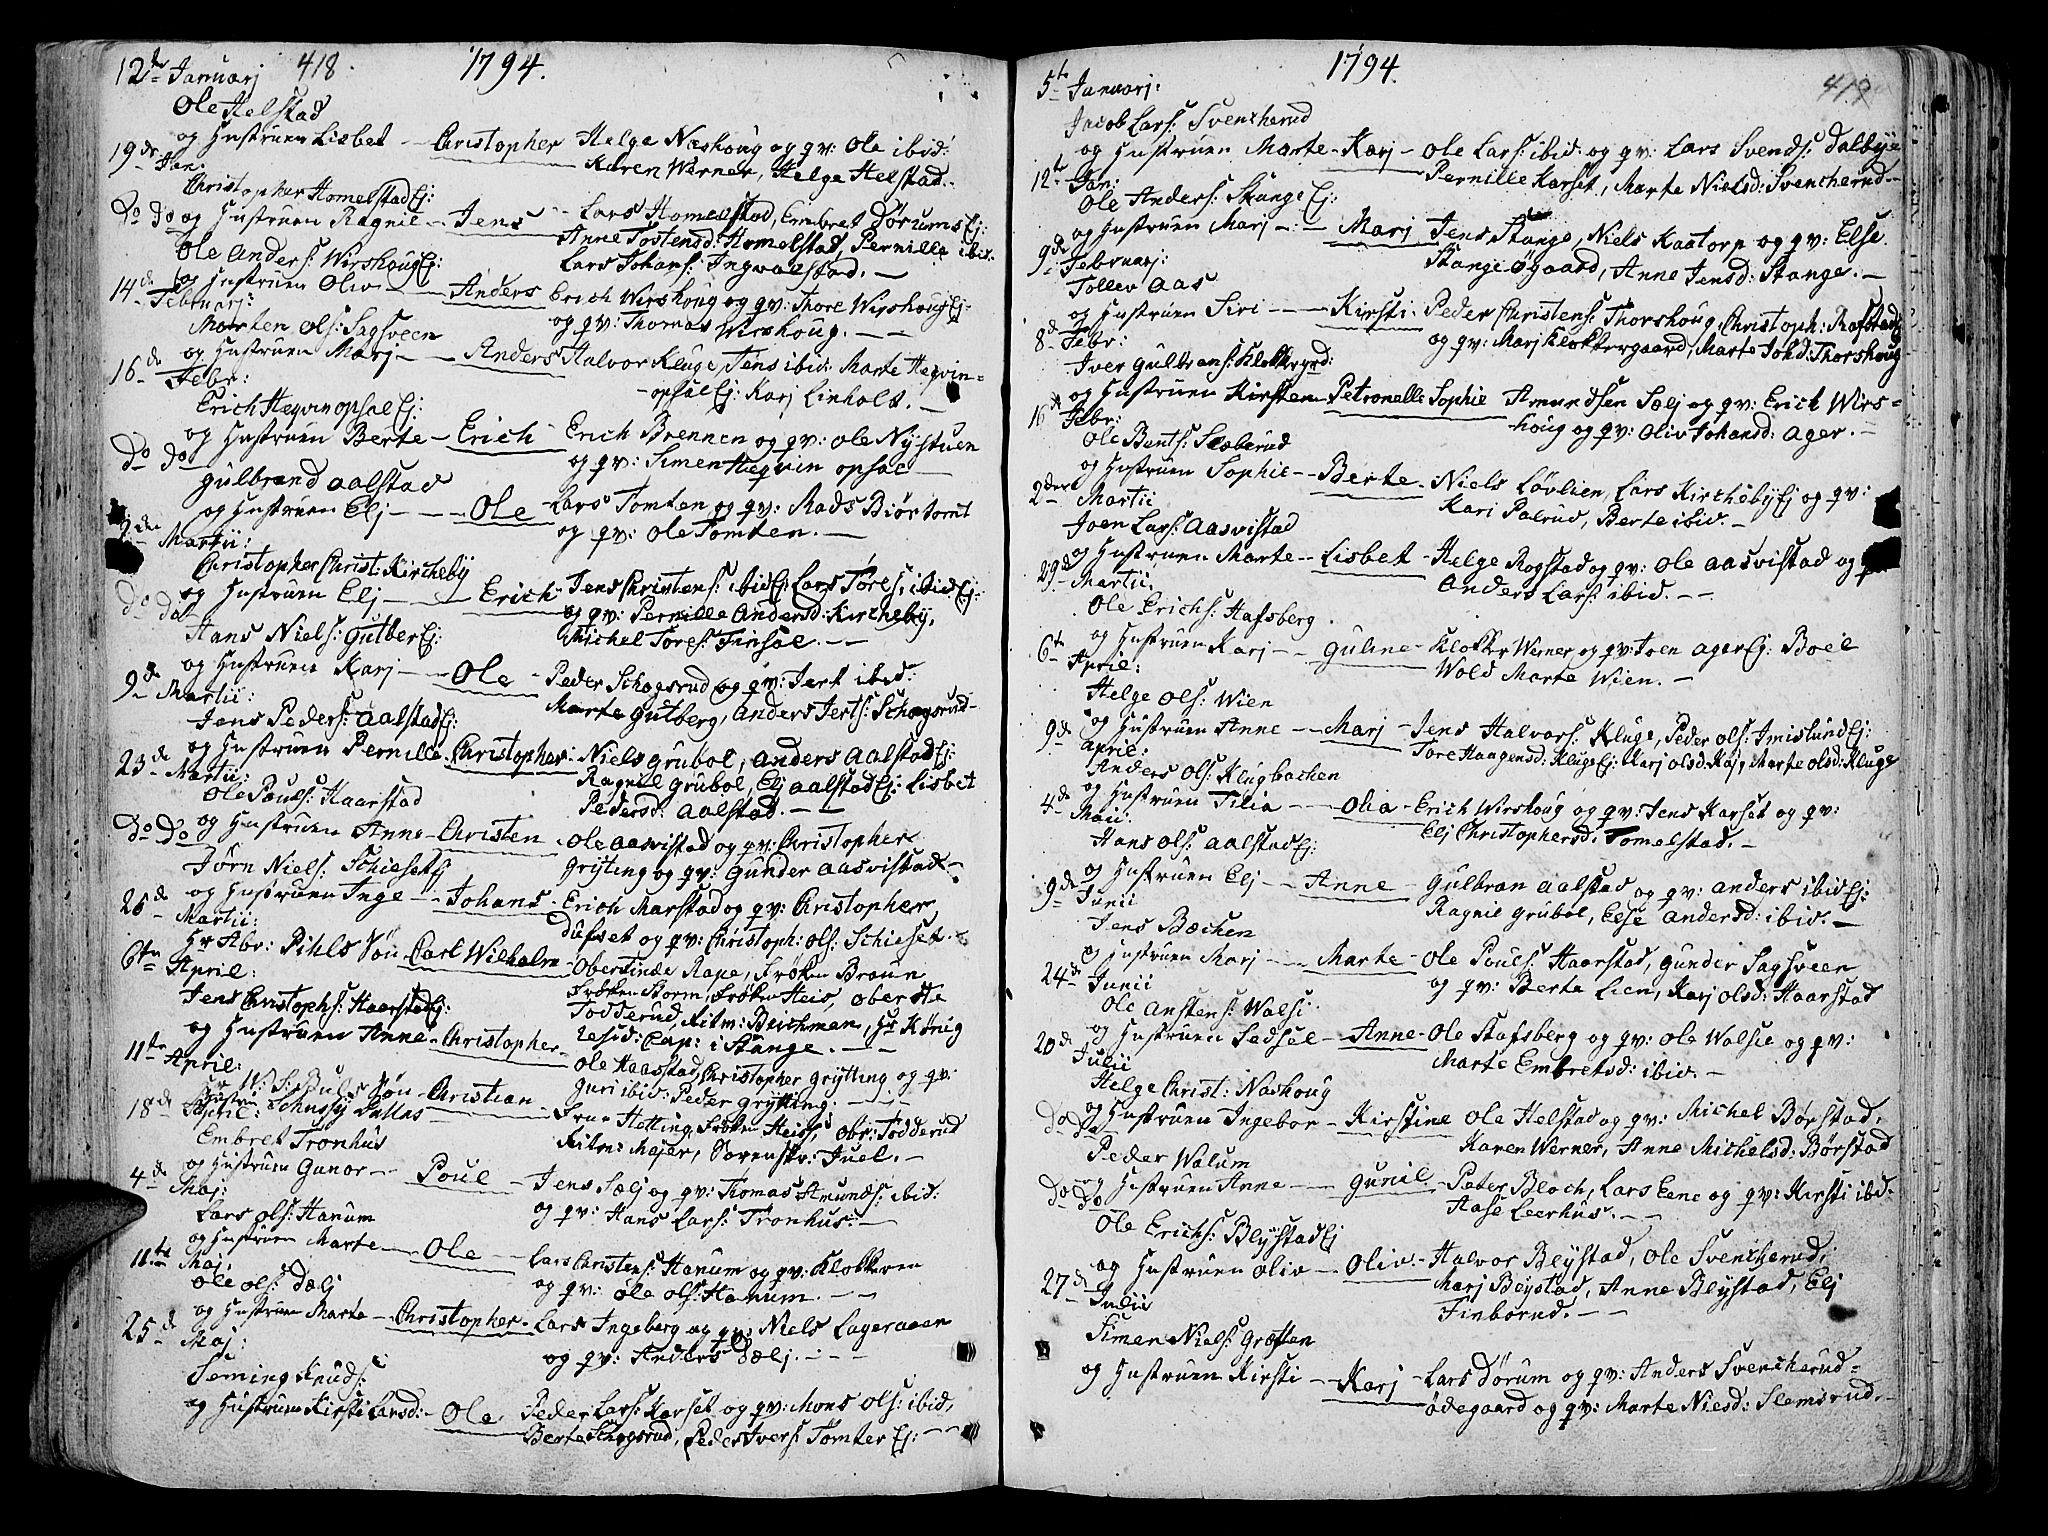 418. 1794.
12te Januarj
Ole Helstad
og Hustruen Lisbet - Christopher Helge Næshoug og qv: Ole ibid:
Karen Werner, Helge Helstad.
19de Jan:
Christopher Homelstad Ej:
og Hustruen Ragnil - Jens - Lars Homelstad, Embret Dørums Ej:
Anne Tostensd: Homelstad, Pernille ibid.
Lars Johans: Ingvalstad. -
do do
Ole Anders: Wirshoug Ej:
og Hustruen Oliv - Anders Erich Wirshoug og qv: Thore Wirshoug Ej:
og qv: Thomas Wirshoug. -
14de Februarj:
Morten Ols: Sagsveen
og Hustruen Marj - Anders Halvor Kluge, Jens ibid: Marte Hegvin=
opsal Ej: Karj Linholt. -
16de Febr:
Erich Hegvinopsal Ej:
og Hustruen Berte - Erich Erich Brennen og qv: Ole Nystuen
og qv: Simen Hegvin opsal
do do
Gulbrand Aalstad
og Hustruen Elj - Ole - Lars Tomten og qv: Mads Biørtomt
og qv: Ole Tomten. -
2den Martii:
Christopher Christ: Kircheby
og Hustruen Elj - Erich - Jens Christens: ibid Ej: Lars Tores: ibid Ej:
og qv: Pernille Andersd: Kircheby,
Michel Tores: Finsal. -
do do
Hans Niels: Gutber Ej:
og Hustruen Karj - Ole - Peder Schogsrud og qv: Jert ibid:
Marte Gutberg, Anders Jerts: Schogsrud -
9de Martii:
Jens Peders: Aalstad Ej:
og Hustruen Pernille. Christopher. Niels Grubol, Anders Aalstad Ej:
Ragnil Grubol, Elj Aalstad Ej: Lisbet
Pedersd: Aalstad. -
23de Martii:
Ole Pouls: Haarstad
og Hustruen Anne - Christen - Ole Aasvistad og qv: Christopher
Grijting og qv: Gunder Aasvistad -
do do
Jørn Niels: Schieset Ej
og Hustruen Inge - Johans - Erich Marstad og qv: Christopher
Dufset og qv: Christoph: Ols: Schieset.
Martii:
Hr Abr: Pihls Søn Carl Wilhelm - Obertinde Rape, Frøken Braun
Frøken Storm, Frøken Heis, Oberste
Todderud, Ritm: Beichman, Hr Kønig
resid: Cap: i Stange. -
6te April:
Jens Christophs: Haarstad Ej:
og Hustruen Anne - Christopher - Ole Haarstad, Christopher Grytting og qv:
Guri ibid: Peder Grytting. -
11te April:
Søn - Christian - Frue Hetting, Frøken Heis, Obr: Todderud
Ritm: Majer, Sorenskr: Juel. -
18de April:
Embret Tronhus
og Hustruen Gunor - Poul - Jens Sælj og qv: Thomas Amunds: ibid:
og qv: Hans Lars: Tronhus. -
4de Maj:
Lars Ols: Hanum
og Hustruen Marte - Ole - Lars Christens: Hanum og qv: Klokkeren
og qv: Ole Ols: Hanum. -
11te Maj:
Ole Ols: Dælj
og Hustruen Marte - Christopher - Lars Ingeberg og qv: Niels Lageraaen
og qv: Anders Dælj. -
25de Maj:
Seming Knuds:
og Hustruen Kirsti Larsd: - Ole - Peder Lars: Karset og qv: Mons Ols: ibid,
Berte Schogsrud, Peder Ivers: Tomter Ej: -
1794. 419
5te Januarj:
Jacob Lars: Svencherud
og Hustruen Marte - Karj - Ole Lars: ibid: og qv: Lars Svends: Dalbye
Pernille Karset, Marte Nielsd: Svencherud -
12te Jan:
Ole Anders: Stange Ej:
og Hustruen Marj - Marj Jens Stange, Niels Kaatorp og qv: Else
Stange Øgaard, Anne Jensd: Stange. -
9de Februarj:
Tollev Aas
og Hustruen Siri - Kirsti - Peder Christens: Thorshoug, Christoph: Rafstad Ej
og qv: Marj Klokkergaard, Marte Johd: Thorshoug
8de Febr:
Iver Gulbrans: Klokkergrd:
og Hustruen Kirsten - Petronelle Sophie Amundsen Sælj og qv: Erich Wirs=
houg og qv: Oliv Johansd: Ager. -
16de Febr:
Ole Bents: Sæberud
og Hustruen Sophie - Berte - Niels Løvlien, Lars Kircheby Ej og qv:
Kari Palrud, Berte ibid. -
2den Martii
Joen Lars: Aasvistad
og Hustruen Marte - Lisbet - Helge Rogstad og qv: Ole Aasvistad og
Anders Lars: ibid. -
29de Martii
Ole Erichs: Hafsberg
og Hustruen Karj - Guline - Klokker Werner og qv: Joen Ager Ej: Boel
Wold Marte Wien. -
6te April:
Helge Ols: Wien
og Hustruen Anne - Marj - Jens Halvors: Kluge, Peder Ols: Imislund Ej:
Tore Haagensd: Kluge Ej: Karj Olsd: Marte Olsd: Kluge
9de April:
Anders Ols: Klugbachen
og Hustruen Tilia - Olia - Erich Wirshoug og qv: Jens Karset og qv:
Elj Christophersd: Tomelstad. -
4de Maii:
Hans Ols: Aalstad Ej:
og Hustruen Elj - Anne - Gulbran Aalstad og qv: Anders ibid Ej:
Ragnil Grubol, Else Andersd: ibid. -
9de Junii
Jens Bæchen
og Hustruen Marj - Marte - Ole Pouls: Haarstad, Gunder Sagsveen
og qv: Berte Lien, Karj Olsd: Haarstad
24de Junii
Ole Anstens: Walsi
og Hustruen Sedsel - Anne - Ole Stafsberg og qv: Ole Walsie og qv:
Marte Embretsd: ibid. -
20de Julii
Helge Christ: Næshoug
og Hustruen Ingebor - Kirstine Ole Helstad og qv: Michel Børstad,
Karen Werner, Anne Michelsd: Børstad
do do
Peder Walum
og Hustruen Anne - Gunil - Peter Bloch, Lars Eene og qv: Kirsti ibid:
Aase Leerhus. -
do do
Ole Erichs: Blystad Ej
og Hustruen Oliv - Oliv - Halvor Blystad, Ole Svencherud,
Marj Blystad, Anne Blystad, Elj
Finborud. -
27de Julii
Simen Niels: Grøtten
og Hustruen Kirsti - Karj - Lars Dørum og qv: Anders Svencherud=
ødegaard og qv: Marte Niesd: Slemsrud. -